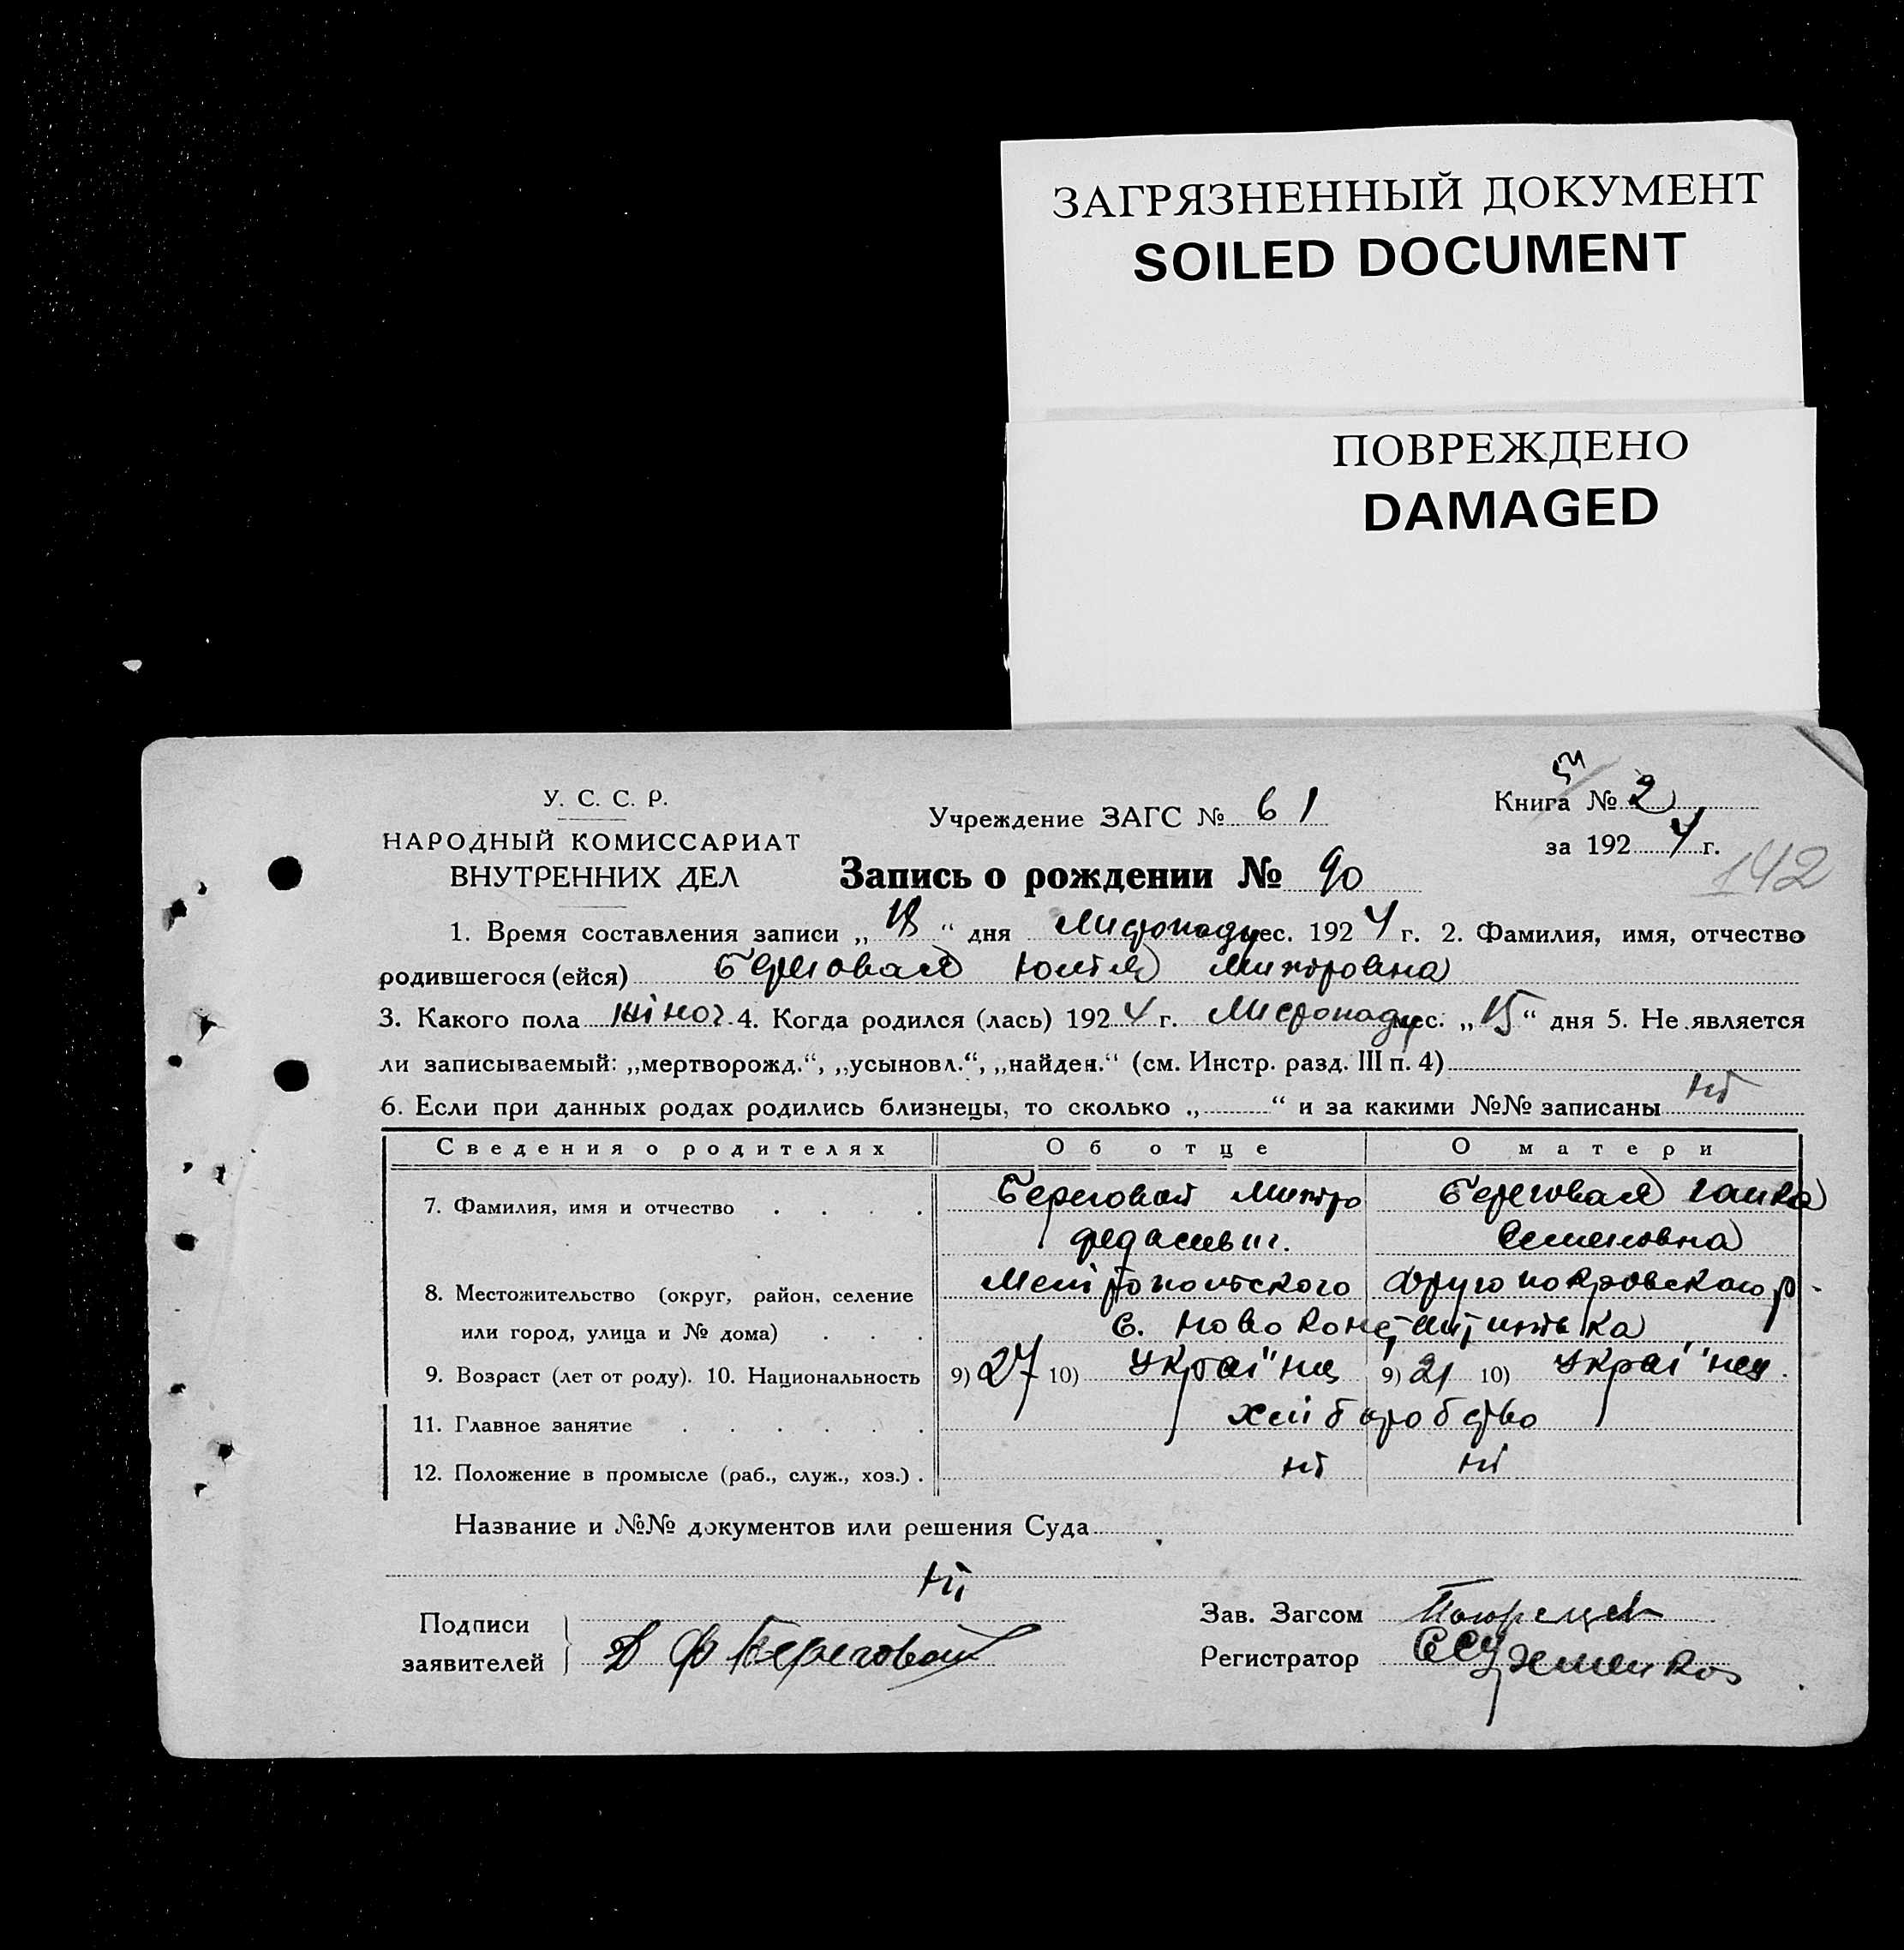 ЗАГРЯЗНЕННЫЙ ДОКУМЕНТ
SOILED DOCUMENT
ПОВРЕЖДЕНО
DAMAGED
У. С. С. Р.
НАРОДНЫЙ КОМИССАРИАТ
ВНУТРЕННИХ ДЕЛ
Учреждение ЗАГС № 61
Книга № 2
за 1924 г.
142
Запись о рождении № 90
1. Время составления записи „18“ дня Листопаду мес. 1924 г. 2. Фамилия, имя, отчество
родившегося (ейся) Береговая Юлія Митровна
3. Какого пола жіноч. 4. Когда родился (лась) 1924 г. Листопаду мес. „15“ дня 5. Не является
ли записываемый: „мертворожд.“, „усыновл.“, „найден.“ (см. Инстр. разд. III п. 4)
6. Если при данных родах родились близнецы, то сколько „ “ и за какими №№ записаны ні
Сведения о родителях Об отце О матери
7. Фамилия, имя и отчество Береговой Митро Береговая Ганна
Семеновна
8. Местожительство (округ, район, селение Мелітопольского р.
или город, улица и № дома) с. Ново Константинівка
9. Возраст (лет от роду). 10. Национальность 9) 27 10) Україна 9) 21 10) Україн
11. Главное занятие Хліборобство
12. Положение в промысле (раб., служ., хоз.) ні ні
Название и №№ документов или решения Суда
ні
Подписи
заявителей Д Ф Береговой
Зав. Загсом
Регистратор